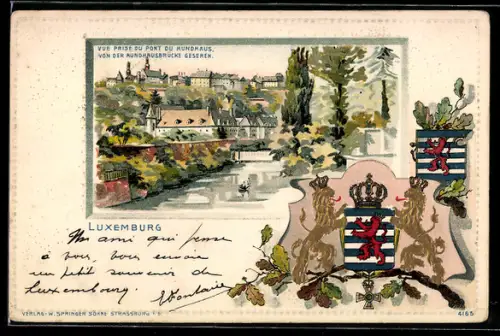 VUE PRISE DU PONT DU HUNDHAUS.
VON DER HUNDHAUSBRÜCKE GESEHEN.
LUXEMBURG
Un ami qui pense
à vous, vous envoie
un petit souvenir de
Luxembourg.
Fontaine
VERLAG W. SPRINGER SÖHNE STRASSBURG i/E
4165